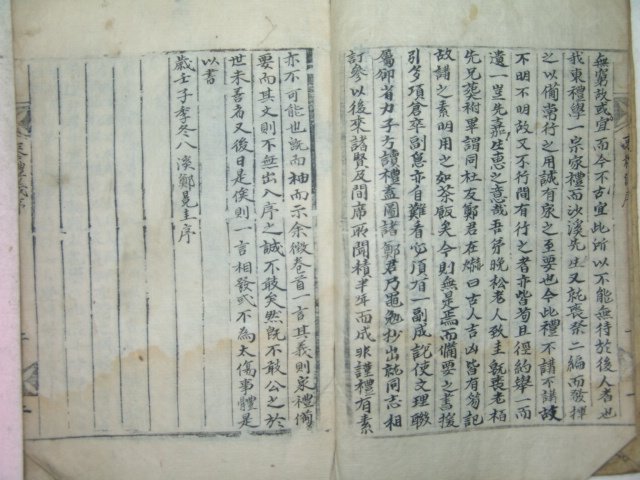 無窮故或宜而今不古宜此所以不能無待於後人者也
我東禮學一宗家禮而沙溪先生又就喪祭二編而發揮
之以備常行之用誠有家之至要也今此禮不講不講故
不明不明故又不行間有行之者亦皆苟且徑約舉一而
遺一豈先嘉生惠之意哉吾弟晚松老人致圭就喪老栢
先兄葬祔畢謂同社友鄭君在爀曰古人吉凶皆有笏記
故譜之素明用之如茶飯矣今則無是焉而備要之書援
引多項倉卒副急亦自難看必須有一副成說使文理聯
屬卽省力子方讀禮盍圖諸鄭君乃黽勉抄出就同志相
訂參以後來諸賢及間席所聞積半年而成非謹禮有素
亦不可能也旣而袖而示余徵卷首一言其義則家禮備
要而其文則不無出入序之誠不敢矣然旣不敢公之於
世未善者又後日是俟則一言相發或不為太傷事體是
以書
歲壬子季冬八溪鄭冕圭序